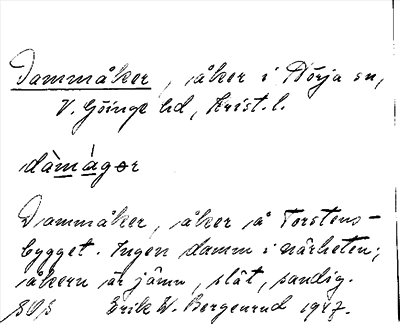 Dammåker, åker i Nörja sn,
V. Göinge hd, Krist. l.
dàmágər
Dammåker, åker å Torstens-
bygget. Ingen damm i närheten;
åkern är jämn, slät, sandig.
Erik W. Bergenrud 1947.